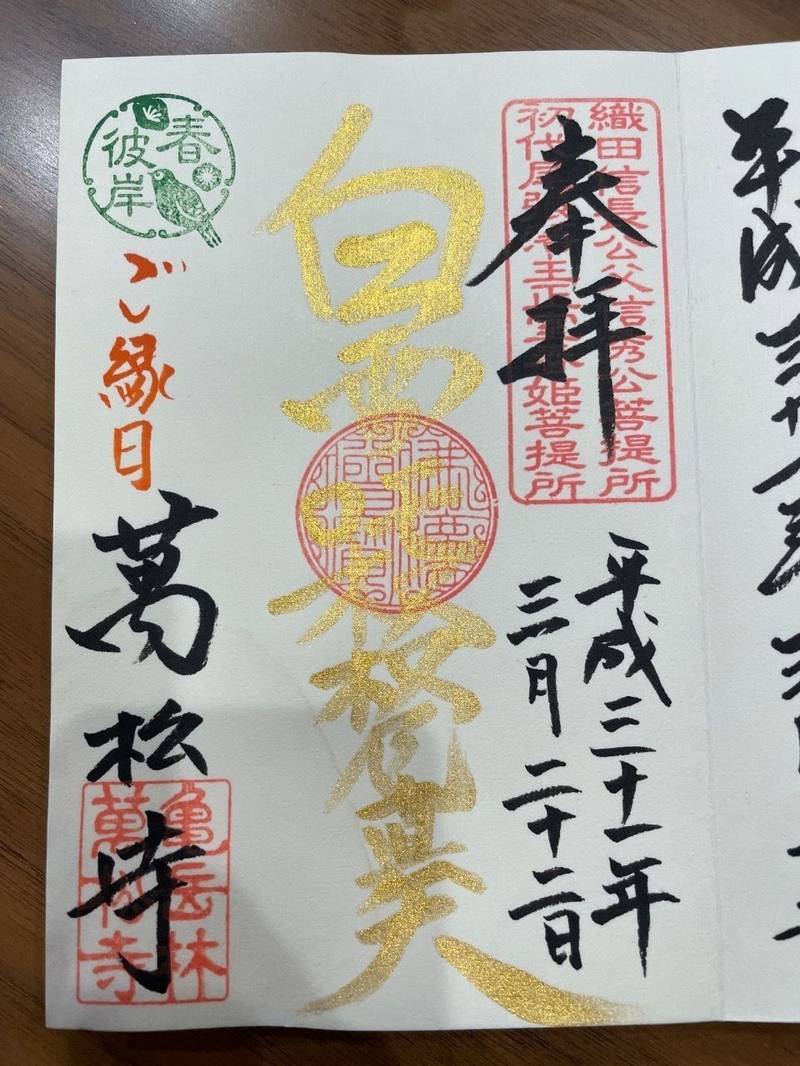 平成
奉拝
織田信長公父信秀公菩提所
初代尾張藩主正室春姫菩提所
平成三十一年
三月二十二日
白雪吒枳尼真天
春
彼岸
ご縁日
萬松寺
龜岳林
萬松寺